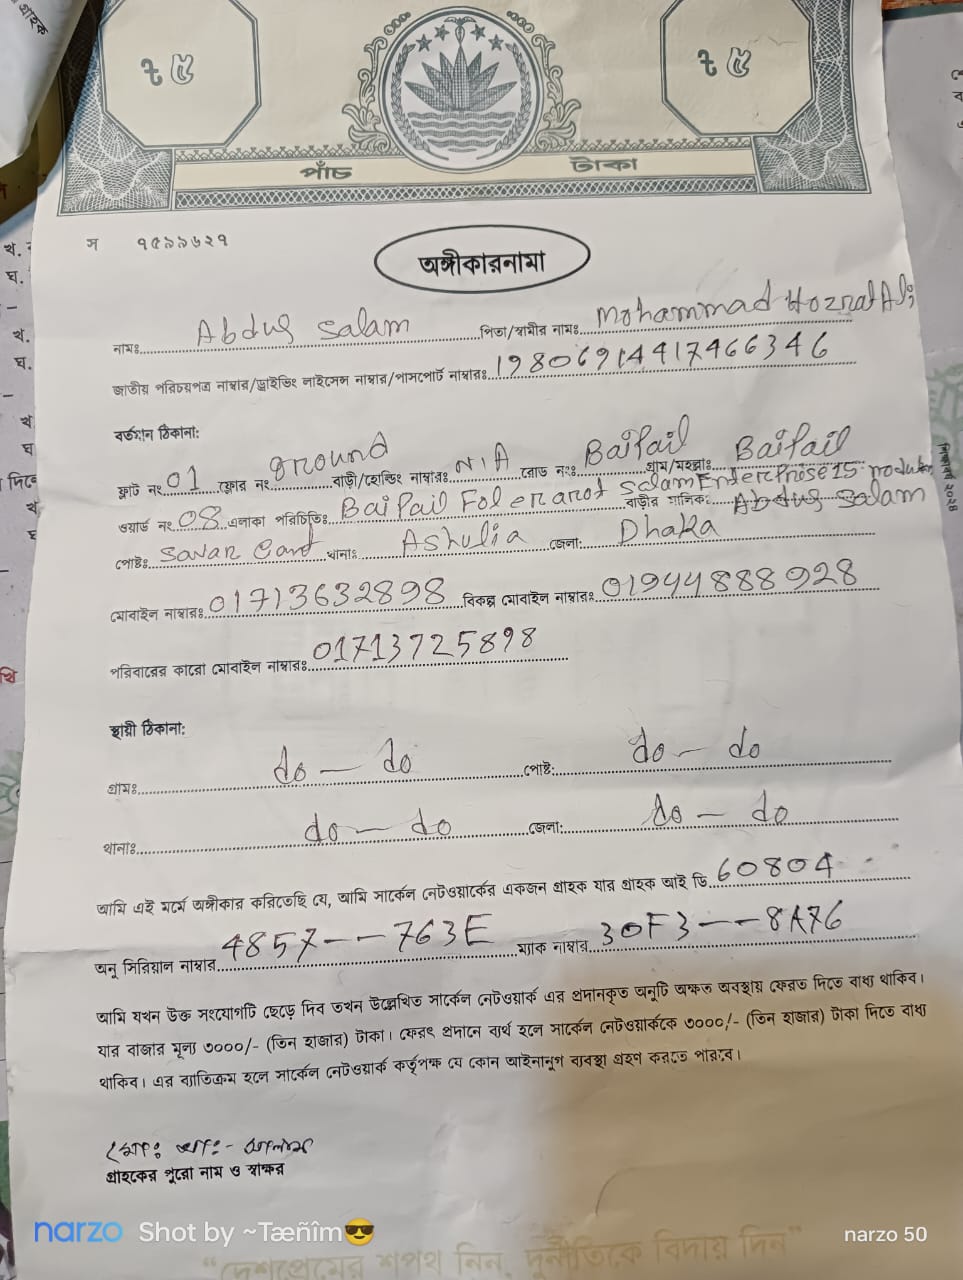 ৳ ৫ ৳ ৫
পাঁচ টাকা
স ৭৫৯৯৬২৭
অঙ্গীকারনামা
নামঃ Abdus Salam পিতা/স্বামীর নামঃ Mohammad Hozrat Ali
জাতীয় পরিচয়পত্র নাম্বার/ড্রাইভিং লাইসেন্স নাম্বার/পাসপোর্ট নাম্বারঃ 19806914417466346
বর্তমান ঠিকানা:
ফ্লাট নং 01 ফ্লোর নং ground বাড়ী/হোল্ডিং নাম্বারঃ N/A রোড নংঃ Baipail গ্রাম/মহল্লাঃ Baipail
ওয়ার্ড নং 08 এলাকা পরিচিতিঃ Baipail Salam Enterprise বাড়ীর মালিক: Abdus Salam
পোষ্টঃ Savar Cant থানাঃ Ashulia জেলা: Dhaka
মোবাইল নাম্বারঃ 01713632898 বিকল্প মোবাইল নাম্বারঃ 01944888928
পরিবারের কারো মোবাইল নাম্বারঃ 01713725898
স্থায়ী ঠিকানা:
গ্রামঃ do — do পোষ্ট: do — do
থানাঃ do — do জেলা: do — do
আমি এই মর্মে অঙ্গীকার করিতেছি যে, আমি সার্কেল নেটওয়ার্কের একজন গ্রাহক যার গ্রাহক আই ডি 60804
অনু সিরিয়াল নাম্বার 4857---763E ম্যাক নাম্বার 30F3---8A76
আমি যখন উক্ত সংযোগটি ছেড়ে দিব তখন উল্লেখিত সার্কেল নেটওয়ার্ক এর প্রদানকৃত অনুটি অক্ষত অবস্থায় ফেরত দিতে বাধ্য থাকিব।
যার বাজার মূল্য ৩০০০/- (তিন হাজার) টাকা। ফেরৎ প্রদানে ব্যর্থ হলে সার্কেল নেটওয়ার্ককে ৩০০০/- (তিন হাজার) টাকা দিতে বাধ্য
থাকিব। এর ব্যাতিক্রম হলে সার্কেল নেটওয়ার্ক কর্তৃপক্ষ যে কোন আইনানুগ ব্যবস্থা গ্রহণ করতে পারবে।
মোঃ আঃ- সালাম
গ্রাহকের পুরো নাম ও স্বাক্ষর
narzo Shot by ~Tæñîm😎 narzo 50
“দেশপ্রেমের শপথ নিন, দুর্নীতিকে বিদায় দিন”